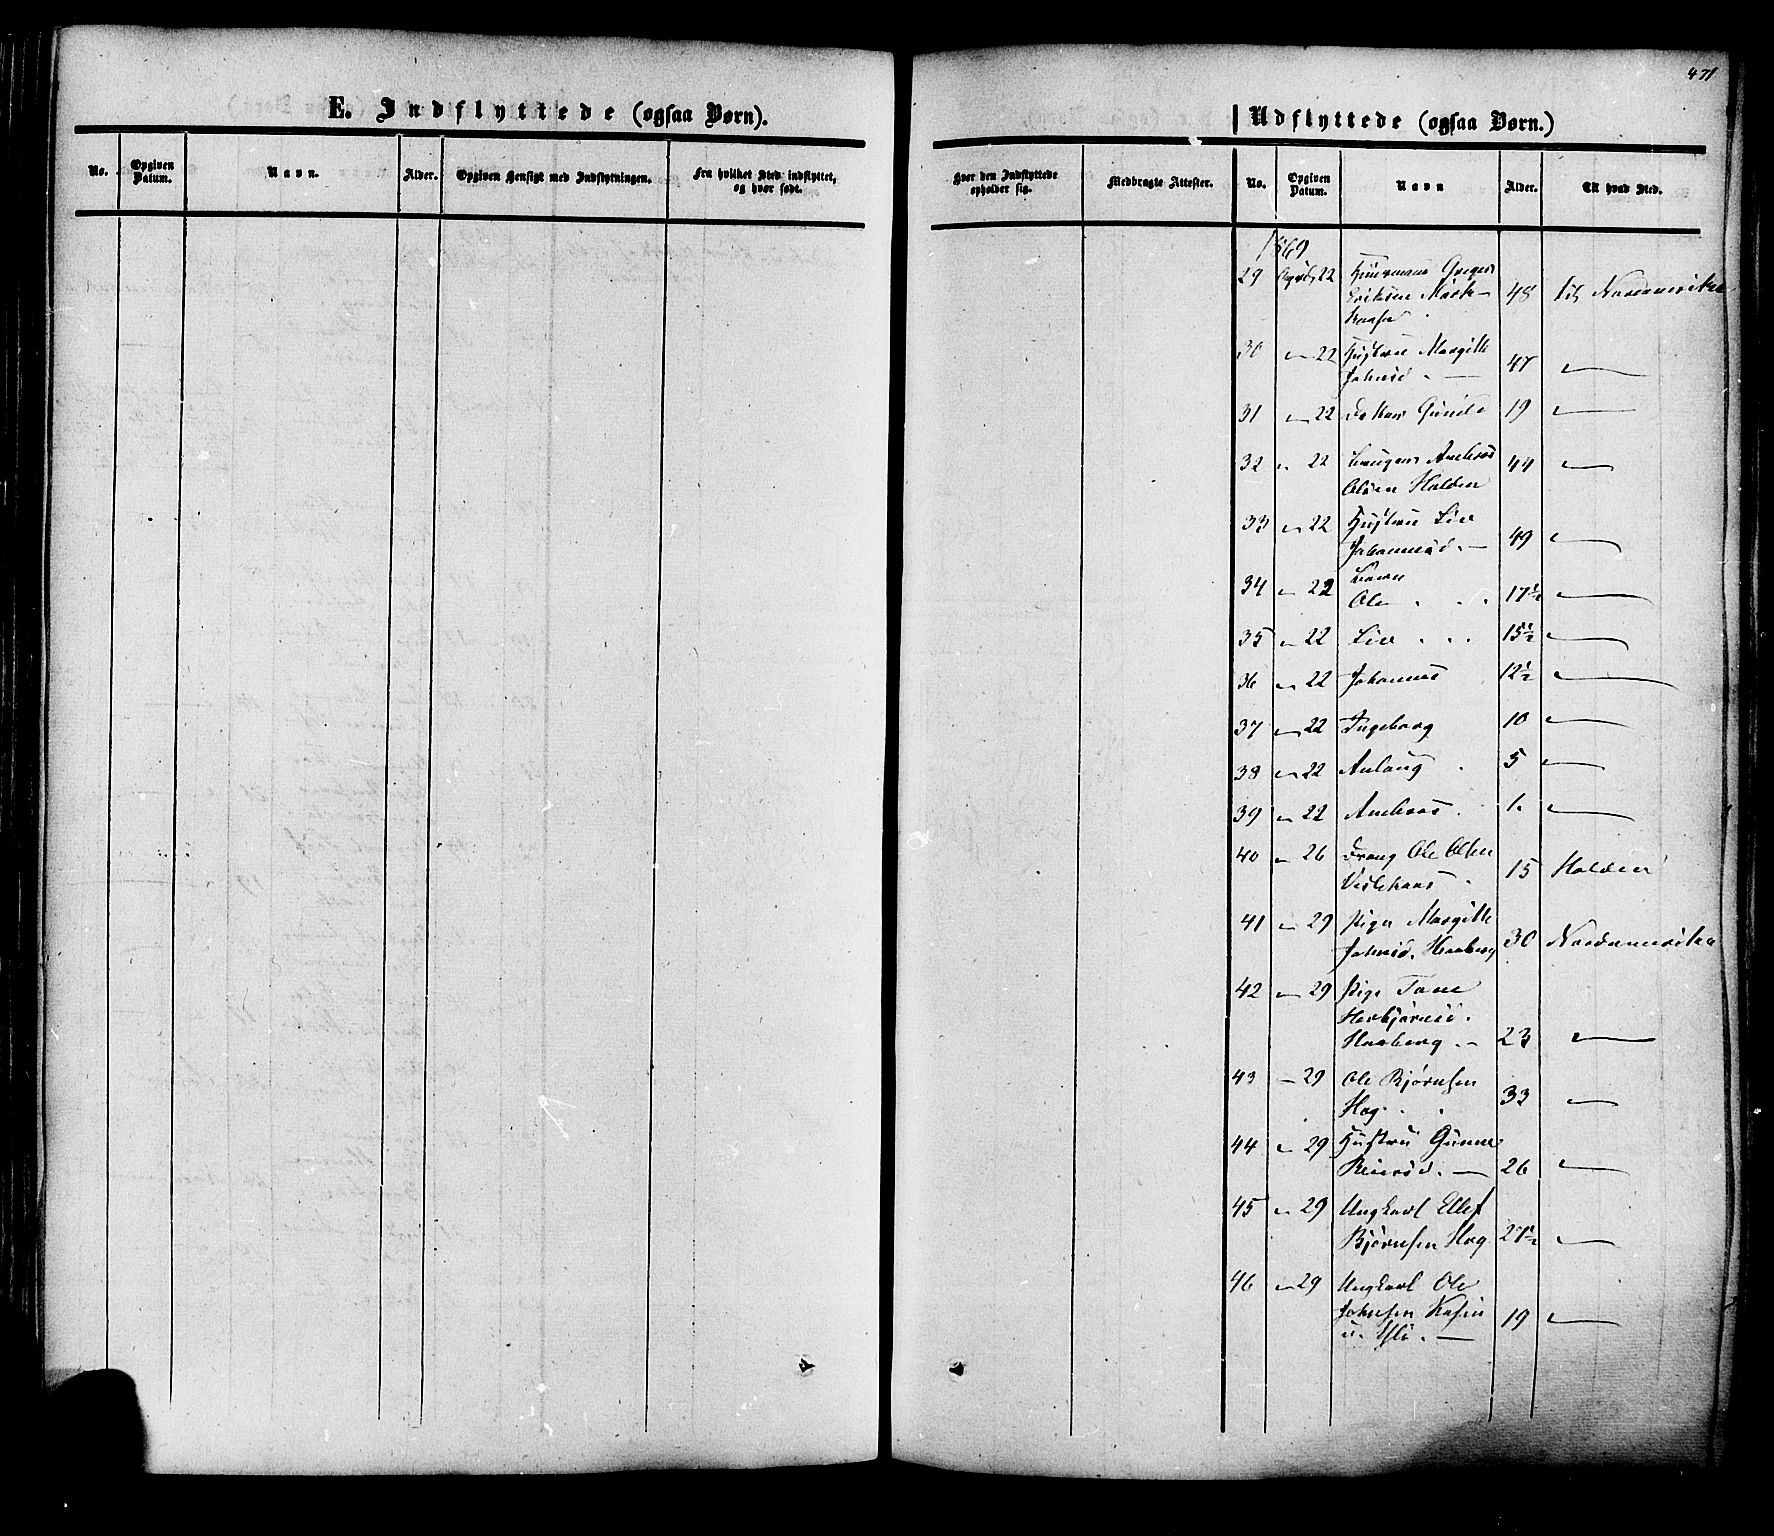 471
E. Indflyttede (ogsaa Børn).
Udflyttede (ogsaa Børn.)
No. Opgiven Datum. Navn. Alder. Opgiven Hensigt med Indflytningen. Fra hvilket Sted indflyttet, og hvor født.
Hvor den Indflyttede opholder sig. Medbragte Attester. No. Opgiven Datum. Navn Alder. Til hvad Sted.
1869
29 April 22 Huusmand Greger
Eriksen 48 til Nordamerika
30 " 22 Hustru Margitte
Johnsd. — 47 —
31 " 22 Datter Gunild 19 —
32 " 22 Andreas 44 —
Olsen Holden
33 " 22 Hustru Liv
Johannesd. — 49 —
34 " 22 Børn
Ole 17½ —
35 " 22 Liv 15½ —
36 " 22 Johannes 12½ —
37 " 22 Ingeborg 10 —
38 " 22 Aslaug 5 —
39 " 22 Andreas 1. —
40 " 26 Dreng Ole Olsen
15 Holden
41 " 29 Pige Margitte
Johnsd. Haaberg 30 Nordamerika
42 " 29 Pige Tone
Herbjørnsd.
Haaberg — 23 —
43 — 29 Ole Bjørnsen
Hag. 33 —
44 " 29 Hustru Gunne
— 26 —
45 " 29 Ungkarl Ellef
Bjørnsen Hag 21½ —
46 " 29 Ungkarl Ole
Johnsen 19 —